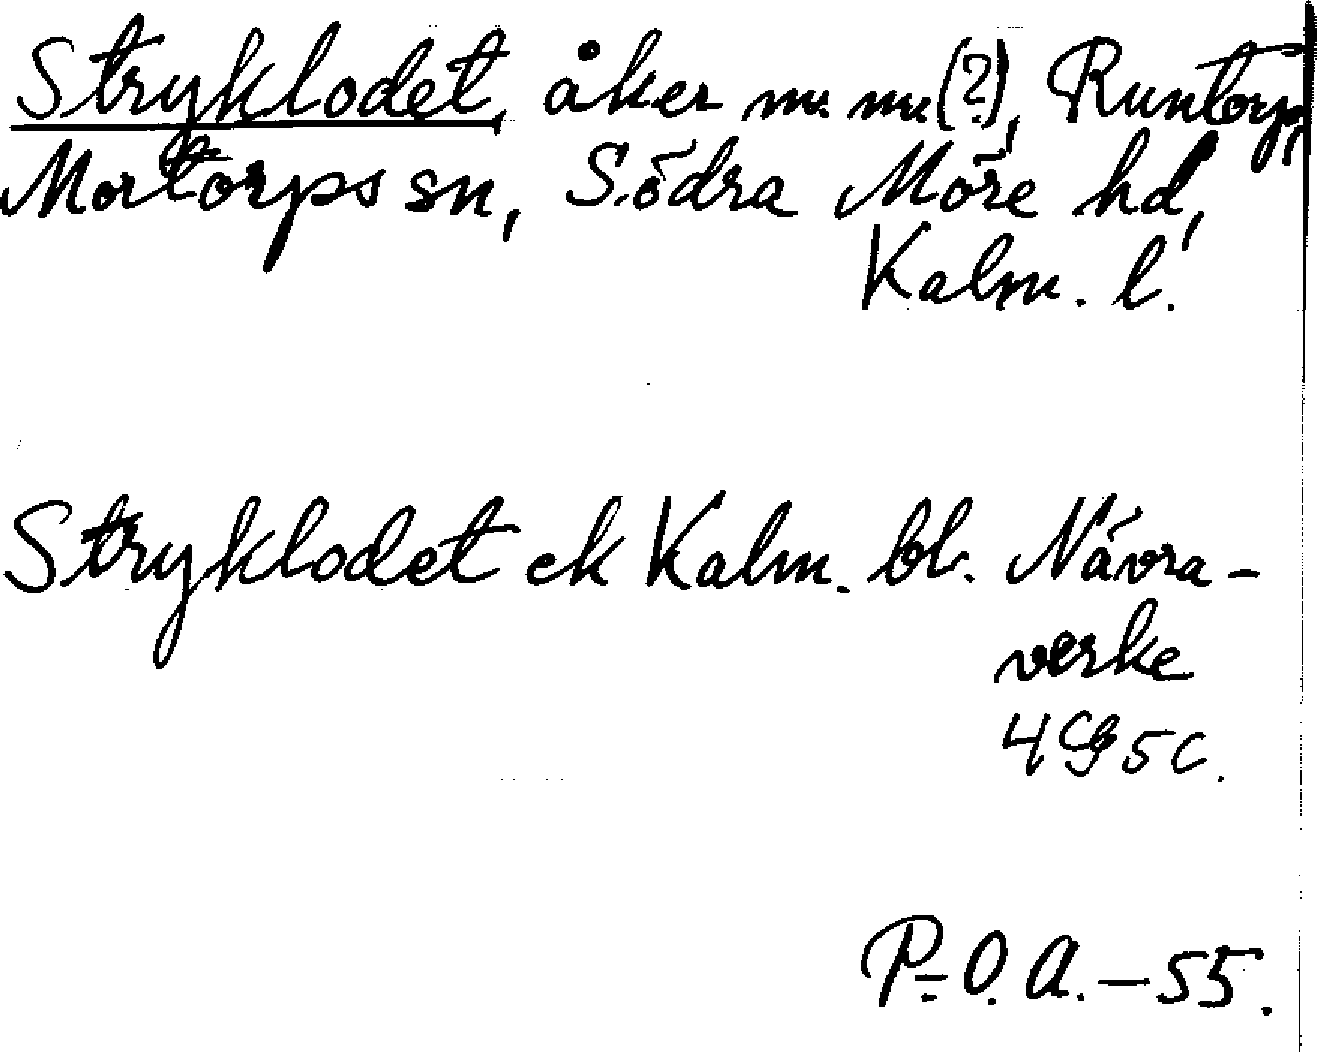 Stryklodet, åker m. m.(?), Runtorp,
Mortorps sn, Södra Möre hd,
Kalm. l.
Stryklodet ek Kalm. bl. Nävra-
verke
4G5c.
P.-O. A. – 55.